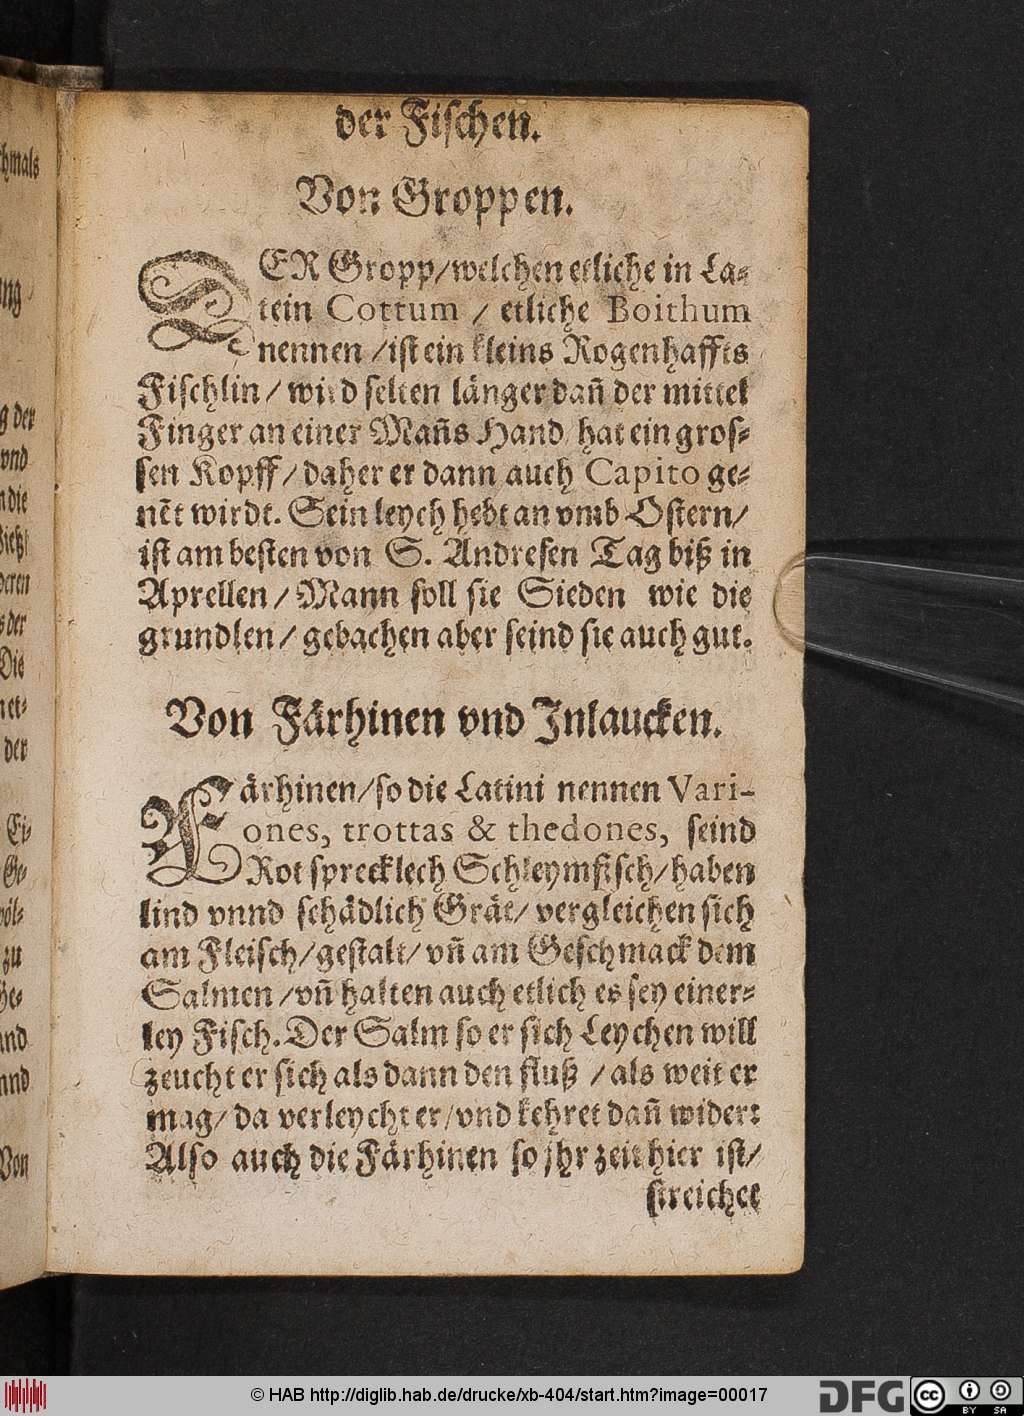 der Fischen.
Von Groppen.
DER Gropp/welchen etliche in La-
tein Cottum / etliche Boithum
nennen /ist ein kleins Rogenhaffts
Fischlin/ wird selten länger dañ der mittel
Finger an einer Mañs Hand/ hat ein gros-
sen Kopff/ daher er dann auch Capito ge-
nẽt wirdt. Sein leych hebt an vmb Ostern/
ist am besten von S. Andresen Tag biß in
Aprellen/ Mann soll sie Sieden wie die
grundlen/ gebachen aber seind sie auch gut.
Von Färhinen vnd Inlaucken.
Färhinen/so die Latini nennen Vari-
ones, trottas & thedones, seind
Rot sprecklech Schleymfisch/haben
lind vnnd schädlich Grät/ vergleichen sich
am Fleisch/gestalt/ vñ am Geschmack dem
Salmen /vñ halten auch etlich es sey einer-
ley Fisch. Der Salm so er sich Leychen will
zeucht er sich als dann den fluß /als weit er
mag/ da verleycht er/vnd kehret dañ wider:
Also auch die Färhinen so jhr zeit hier ist/
streichet
chmals
ng der
vnd
n die
deren
s der
Die
der
Ei-
Ge-
zu
and
nnd
Von
© HAB http://diglib.hab.de/drucke/xb-404/start.htm?image=00017
DFG
cc
BY SA